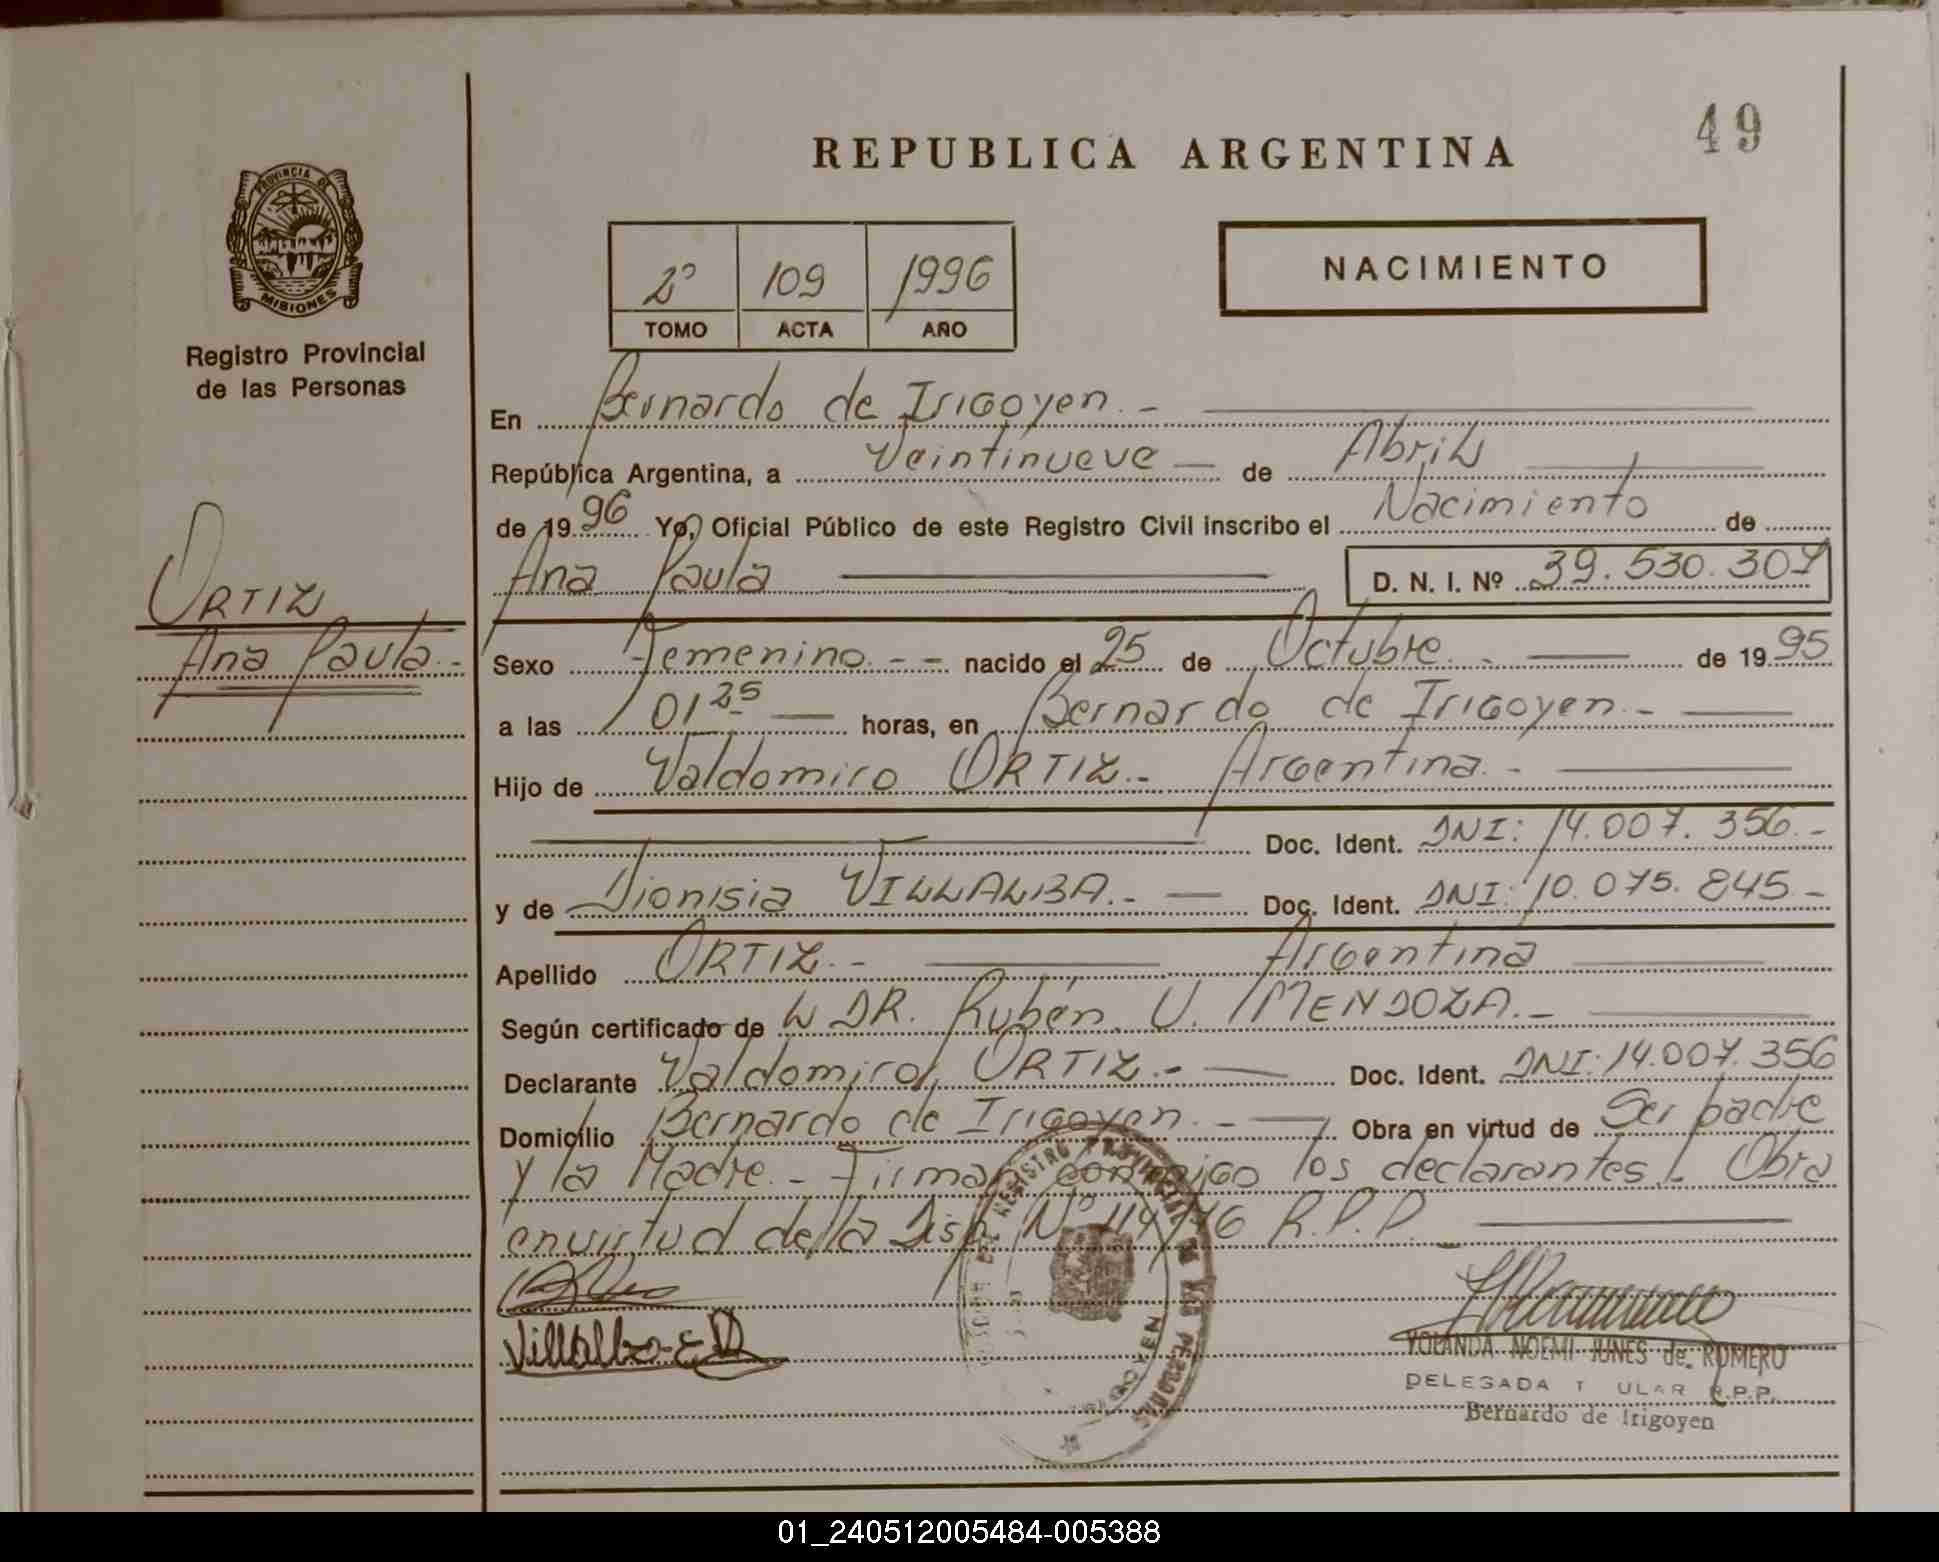 49
REPUBLICA ARGENTINA
PROVINCIA DE
MISIONES
Registro Provincial
de las Personas
2º 109 1996
TOMO ACTA AÑO
NACIMIENTO
En Bernardo de Irigoyen. -
República Argentina, a Veintinueve de Abril
de 1996 Yo, Oficial Público de este Registro Civil inscribo el Nacimiento de
Ana Paula D. N. I. Nº 39.530.307
ORTIZ
Ana Paula.-
Sexo Femenino. - - nacido el 25 de Octubre. - de 1995
a las 01 25 horas, en Bernardo de Irigoyen. -
Hijo de Valdomiro ORTIZ.- Argentina. -
Doc. Ident. DNI: 14.007.356.-
y de Dionisia VILLALBA.- Doc. Ident. DNI: 10.075.845.-
Apellido ORTIZ.- Argentina
Según certificado de L DR. Rubén U. MENDOZA.-
Declarante Valdomiro ORTIZ.- Doc. Ident. DNI: 14.007.356
Domicilio Bernardo de Irigoyen. - Obra en virtud de Ser padre
y la Madre.- Firman conmigo los declarantes.- Obra
envirtud de la Disp. Nº 114/ R.P.P.
Villalba E D
YOLANDA NOEMI JUNES de ROMERO
DELEGADA T ULAR R.P.P.
Bernardo de Irigoyen
01_240512005484-005388